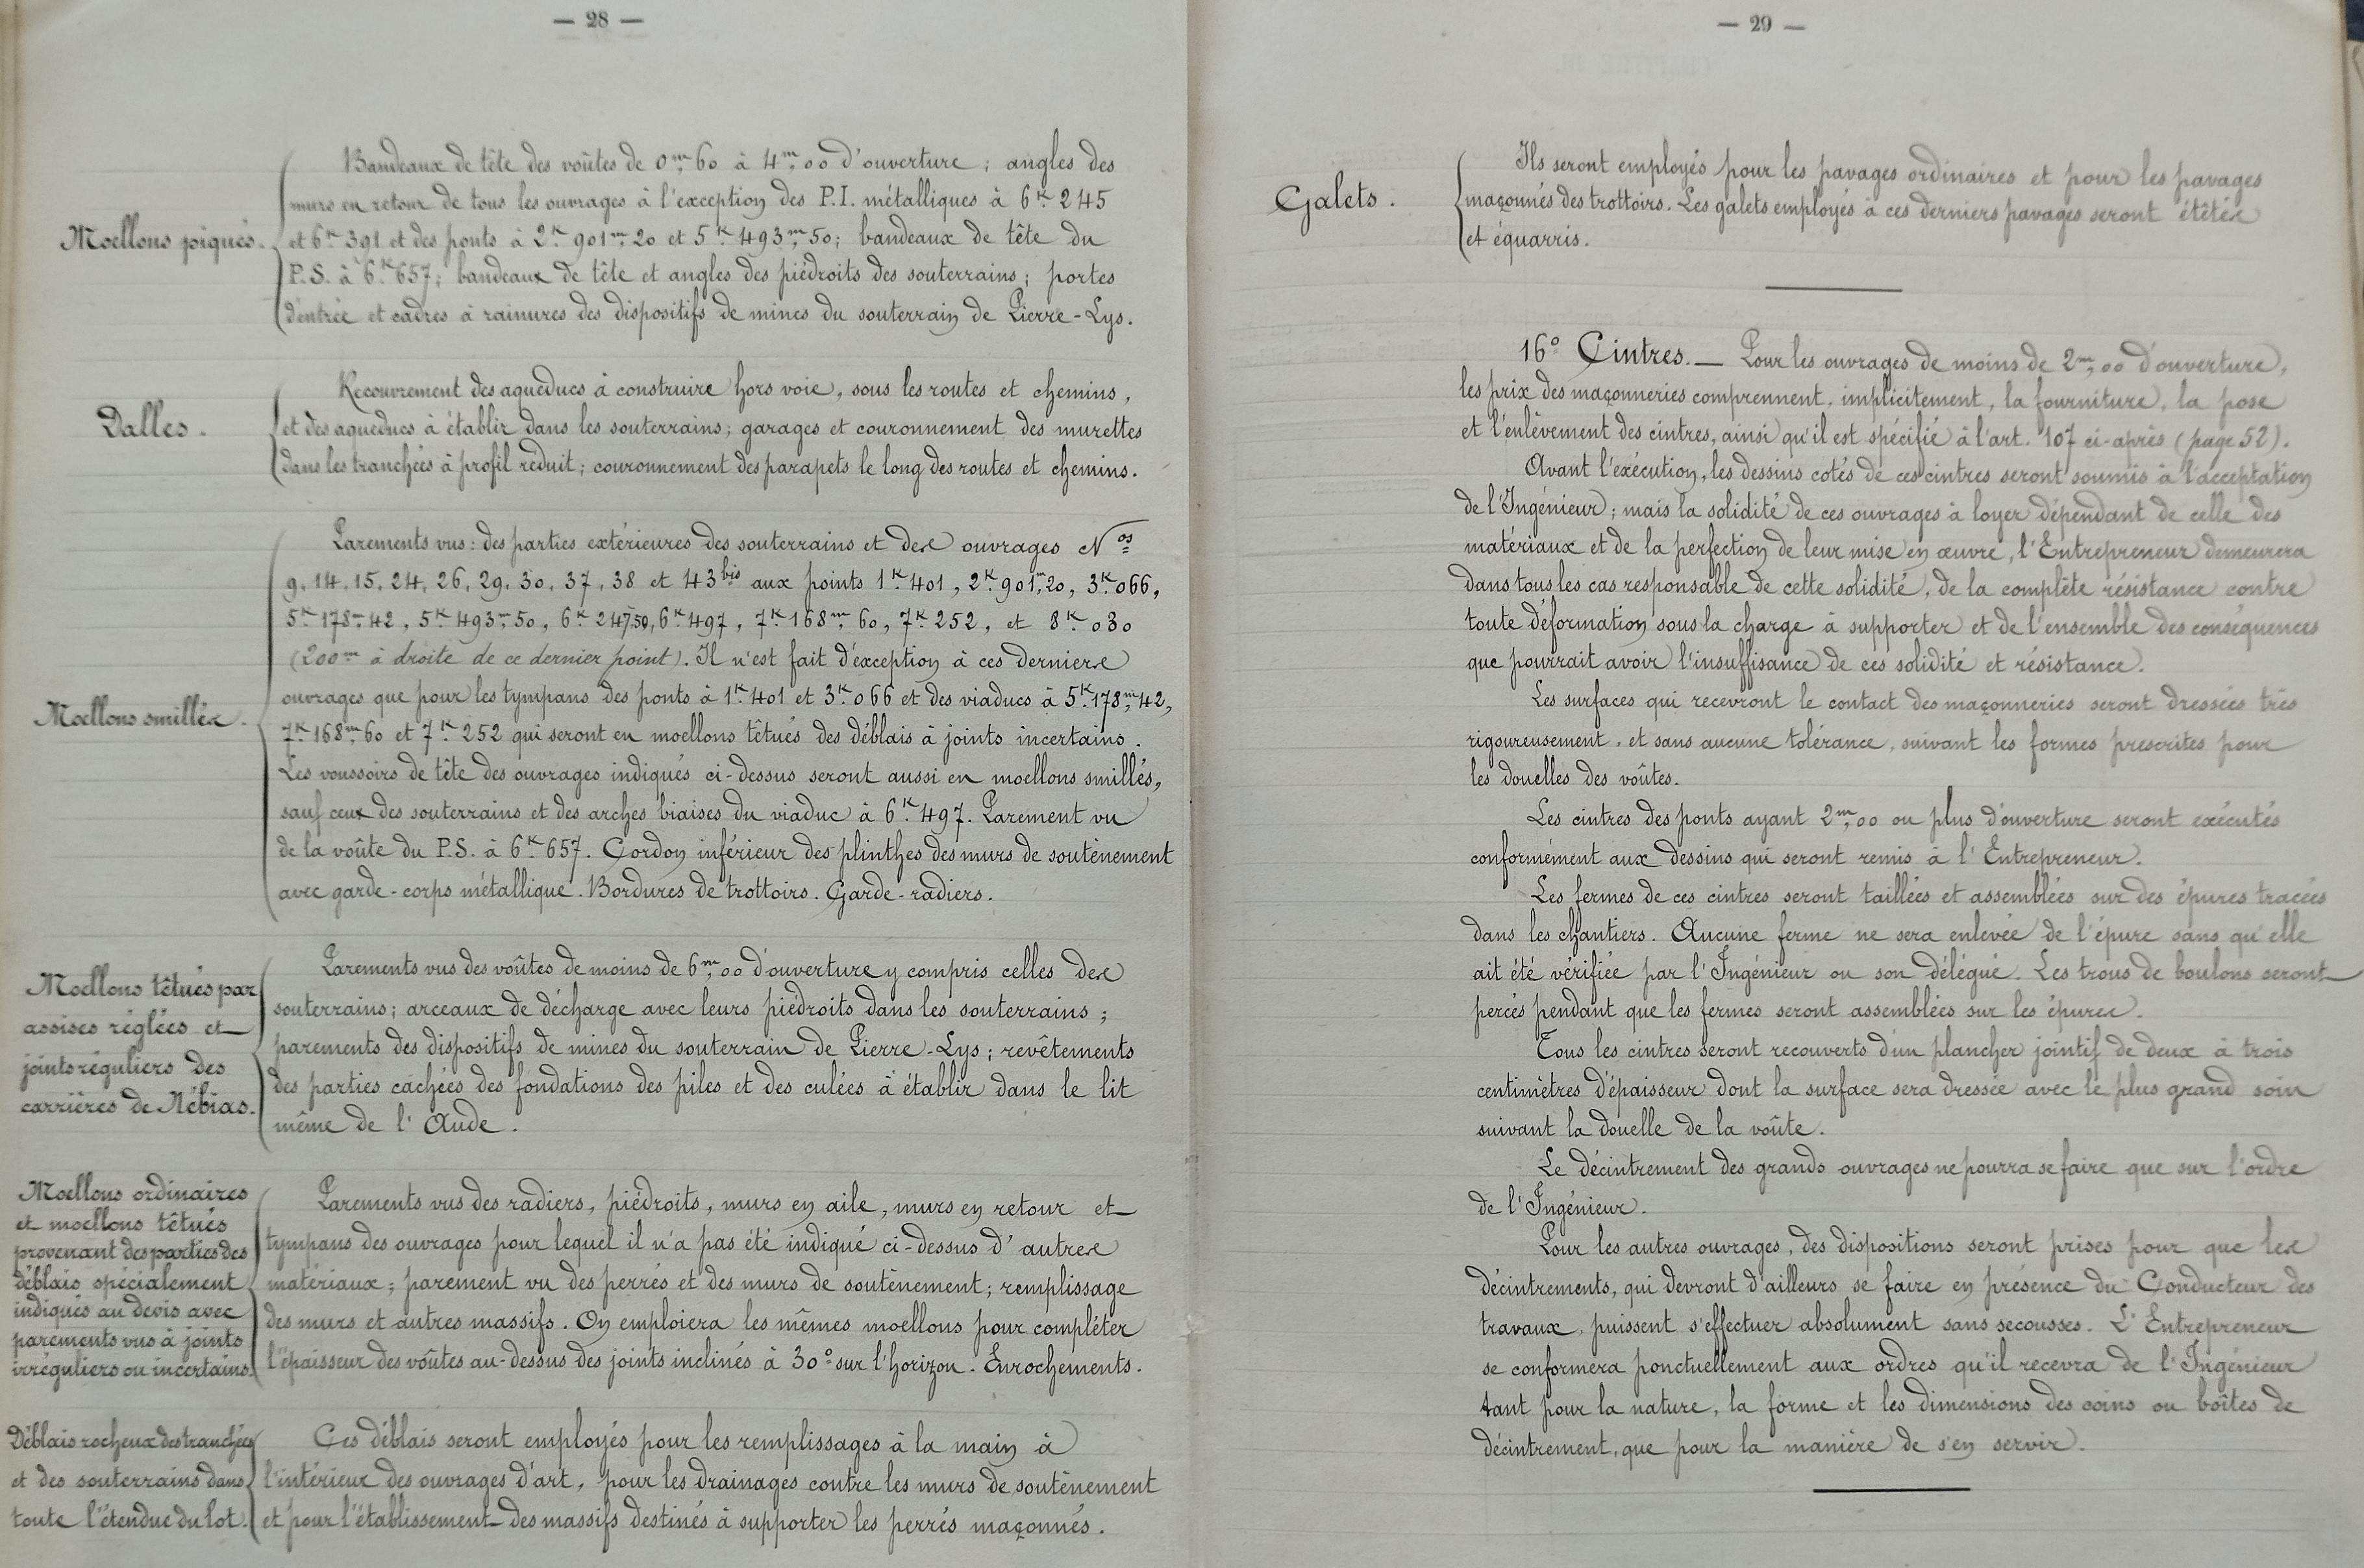 — 28 —
Moellons piqués.
Bandeaux de tête des voûtes de 0m,60 à 4m,00 d'ouverture ; angles des
murs en retour de tous les ouvrages à l'exception des P.I. métalliques à 6K.245
et 6K.391 et des ponts à 2K.901m,20 et 5K.493m,50; bandeaux de tête du
P.S. à 6K.657; bandeaux de tête et angles des piédroits des souterrains ; portes
d'entrée et cadres à rainures des dispositifs de mines du souterrain de Pierre-Lys.
Dalles.
Recouvrement des aqueducs à construire hors voie, sous les routes et chemins,
et des aqueducs à établir dans les souterrains; garages et couronnement des murettes
dans les tranchées à profil réduit ; couronnement des parapets le long des routes et chemins.
Moellons smillés.
Parements vus : des parties extérieures des souterrains et des ouvrages Nos
9, 14, 15, 24, 26, 29, 30, 37, 38 et 43bis aux points 1K.401, 2K.901m,20, 3K.066,
5K.178m,42, 5K.493m,50, 6K.247,50, 6K.497, 7K.168m,60, 7K.252, et 8K.030
(200m à droite de ce dernier point). Il n'est fait d'exception à ces derniers
ouvrages que pour les tympans des ponts à 1K.401 et 3K.066 et des viaducs à 5K.178m,42,
7K.168m,60 et 7K.252 qui seront en moellons têtués des déblais à joints incertains.
Les voussoirs de tête des ouvrages indiqués ci-dessus seront aussi en moellons smillés,
sauf ceux des souterrains et des arches biaises du viaduc à 6K.497. Parement vu
de la voûte du P.S. à 6K.657. Cordon inférieur des plinthes des murs de soutènement
avec garde-corps métallique. Bordures de trottoirs. Garde-radiers.
Moellons têtués par
assises réglées et
joints réguliers des
carrières de Nébias.
Parements vus des voûtes de moins de 6m,00 d'ouverture y compris celles des
souterrains; arceaux de décharge avec leurs piédroits dans les souterrains ;
parements des dispositifs de mines du souterrain de Pierre-Lys ; revêtements
des parties cachées des fondations des piles et des culées à établir dans le lit
même de l'Aude.
Moellons ordinaires
et moellons têtués
provenant des parties des
déblais spécialement
indiqués au devis avec
parements vus à joints
irréguliers ou incertains.
Parements vus des radiers, piédroits, murs en aile, murs en retour et
tympans des ouvrages pour lequel il n'a pas été indiqué ci-dessus d'autres
matériaux ; parement vu des perrés et des murs de soutènement ; remplissage
des murs et autres massifs. On emploiera les mêmes moellons pour compléter
l'épaisseur des voûtes au-dessus des joints inclinés à 30° sur l'horizon. Enrochements.
Déblais rocheux des tranchées
et des souterrains dans
toute l'étendue du lot.
Ces déblais seront employés pour les remplissages à la main à
l'intérieur des ouvrages d'art, pour les drainages contre les murs de soutènement
et pour l'établissement des massifs destinés à supporter les perrés maçonnés.
— 29 —
Galets.
Ils seront employés pour les pavages ordinaires et pour les pavages
maçonnés des trottoirs. Les galets employés à ces derniers pavages seront étêtés
et équarris.
16° Cintres. — Pour les ouvrages de moins de 2m,00 d'ouverture,
les prix des maçonneries comprennent, implicitement, la fourniture, la pose
et l'enlèvement des cintres, ainsi qu'il est spécifié à l'art. 107 ci-après (page 52).
Avant l'exécution, les dessins cotés de ces cintres seront soumis à l'acceptation
de l'Ingénieur ; mais la solidité de ces ouvrages à loyer dépendant de celle des
matériaux et de la perfection de leur mise en œuvre, l'Entrepreneur demeurera
dans tous les cas responsable de cette solidité, de la complète résistance contre
toute déformation sous la charge à supporter et de l'ensemble des conséquences
que pourrait avoir l'insuffisance de ces solidité et résistance.
Les surfaces qui recevront le contact des maçonneries seront dressées très
rigoureusement, et sans aucune tolérance, suivant les formes prescrites pour
les douelles des voûtes.
Les cintres des ponts ayant 2m,00 ou plus d'ouverture seront exécutés
conformément aux dessins qui seront remis à l'Entrepreneur.
Les fermes de ces cintres seront taillées et assemblées sur des épures tracées
dans les chantiers. Aucune ferme ne sera enlevée de l'épure sans qu'elle
ait été vérifiée par l'Ingénieur ou son délégué. Les trous de boulons seront
percés pendant que les fermes seront assemblées sur les épures.
Tous les cintres seront recouverts d'un plancher jointif de deux à trois
centimètres d'épaisseur dont la surface sera dressée avec le plus grand soin
suivant la douelle de la voûte.
Le décintrement des grands ouvrages ne pourra se faire que sur l'ordre
de l'Ingénieur.
Pour les autres ouvrages, des dispositions seront prises pour que les
décintrements, qui devront d'ailleurs se faire en présence du Conducteur des
travaux, puissent s'effectuer absolument sans secousses. L'Entrepreneur
se conformera ponctuellement aux ordres qu'il recevra de l'Ingénieur
tant pour la nature, la forme et les dimensions des coins ou boîtes de
décintrement, que pour la manière de s'en servir.